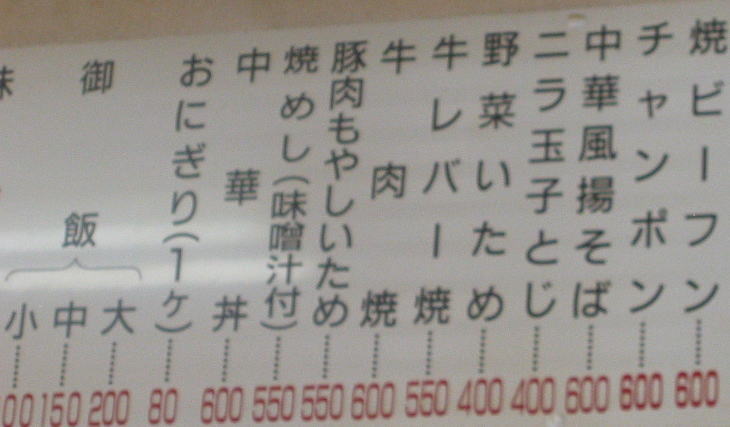 焼ビーフン 600
チャンポン 600
中華風揚そば 600
ニラ玉子とじ 400
野菜いため 400
牛レバー焼 550
牛肉焼 600
豚肉もやしいため 550
焼めし(味噌汁付) 550
中華丼 600
おにぎり(1ケ) 80
御飯
大 200
中 150
小